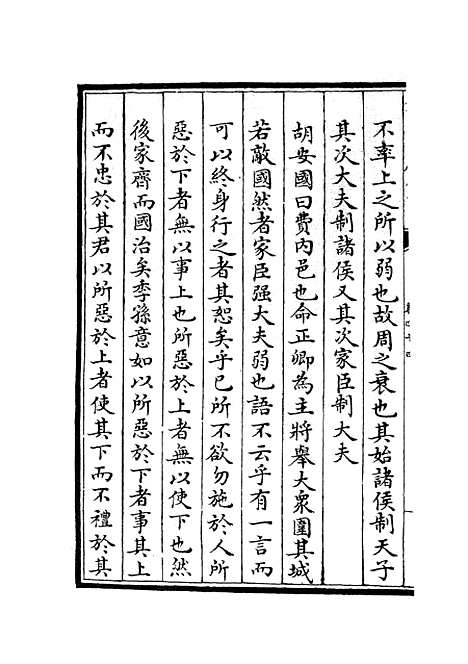 不率上之所以弱也故周之衰也其始諸侯制天子
其次大夫制諸侯又其次家臣制大夫
胡安國曰費內邑也命正卿為主將舉大眾圍其城
若敵國然者家臣强大夫弱也語不云乎有一言而
可以終身行之者其恕矣乎已所不欲勿施於人所
惡於下者無以事上也所惡於上者無以使下也然
後家齊而國治矣季孫意如以所惡於下者事其上
而不忠於其君以所惡於上者使其下而不禮於其